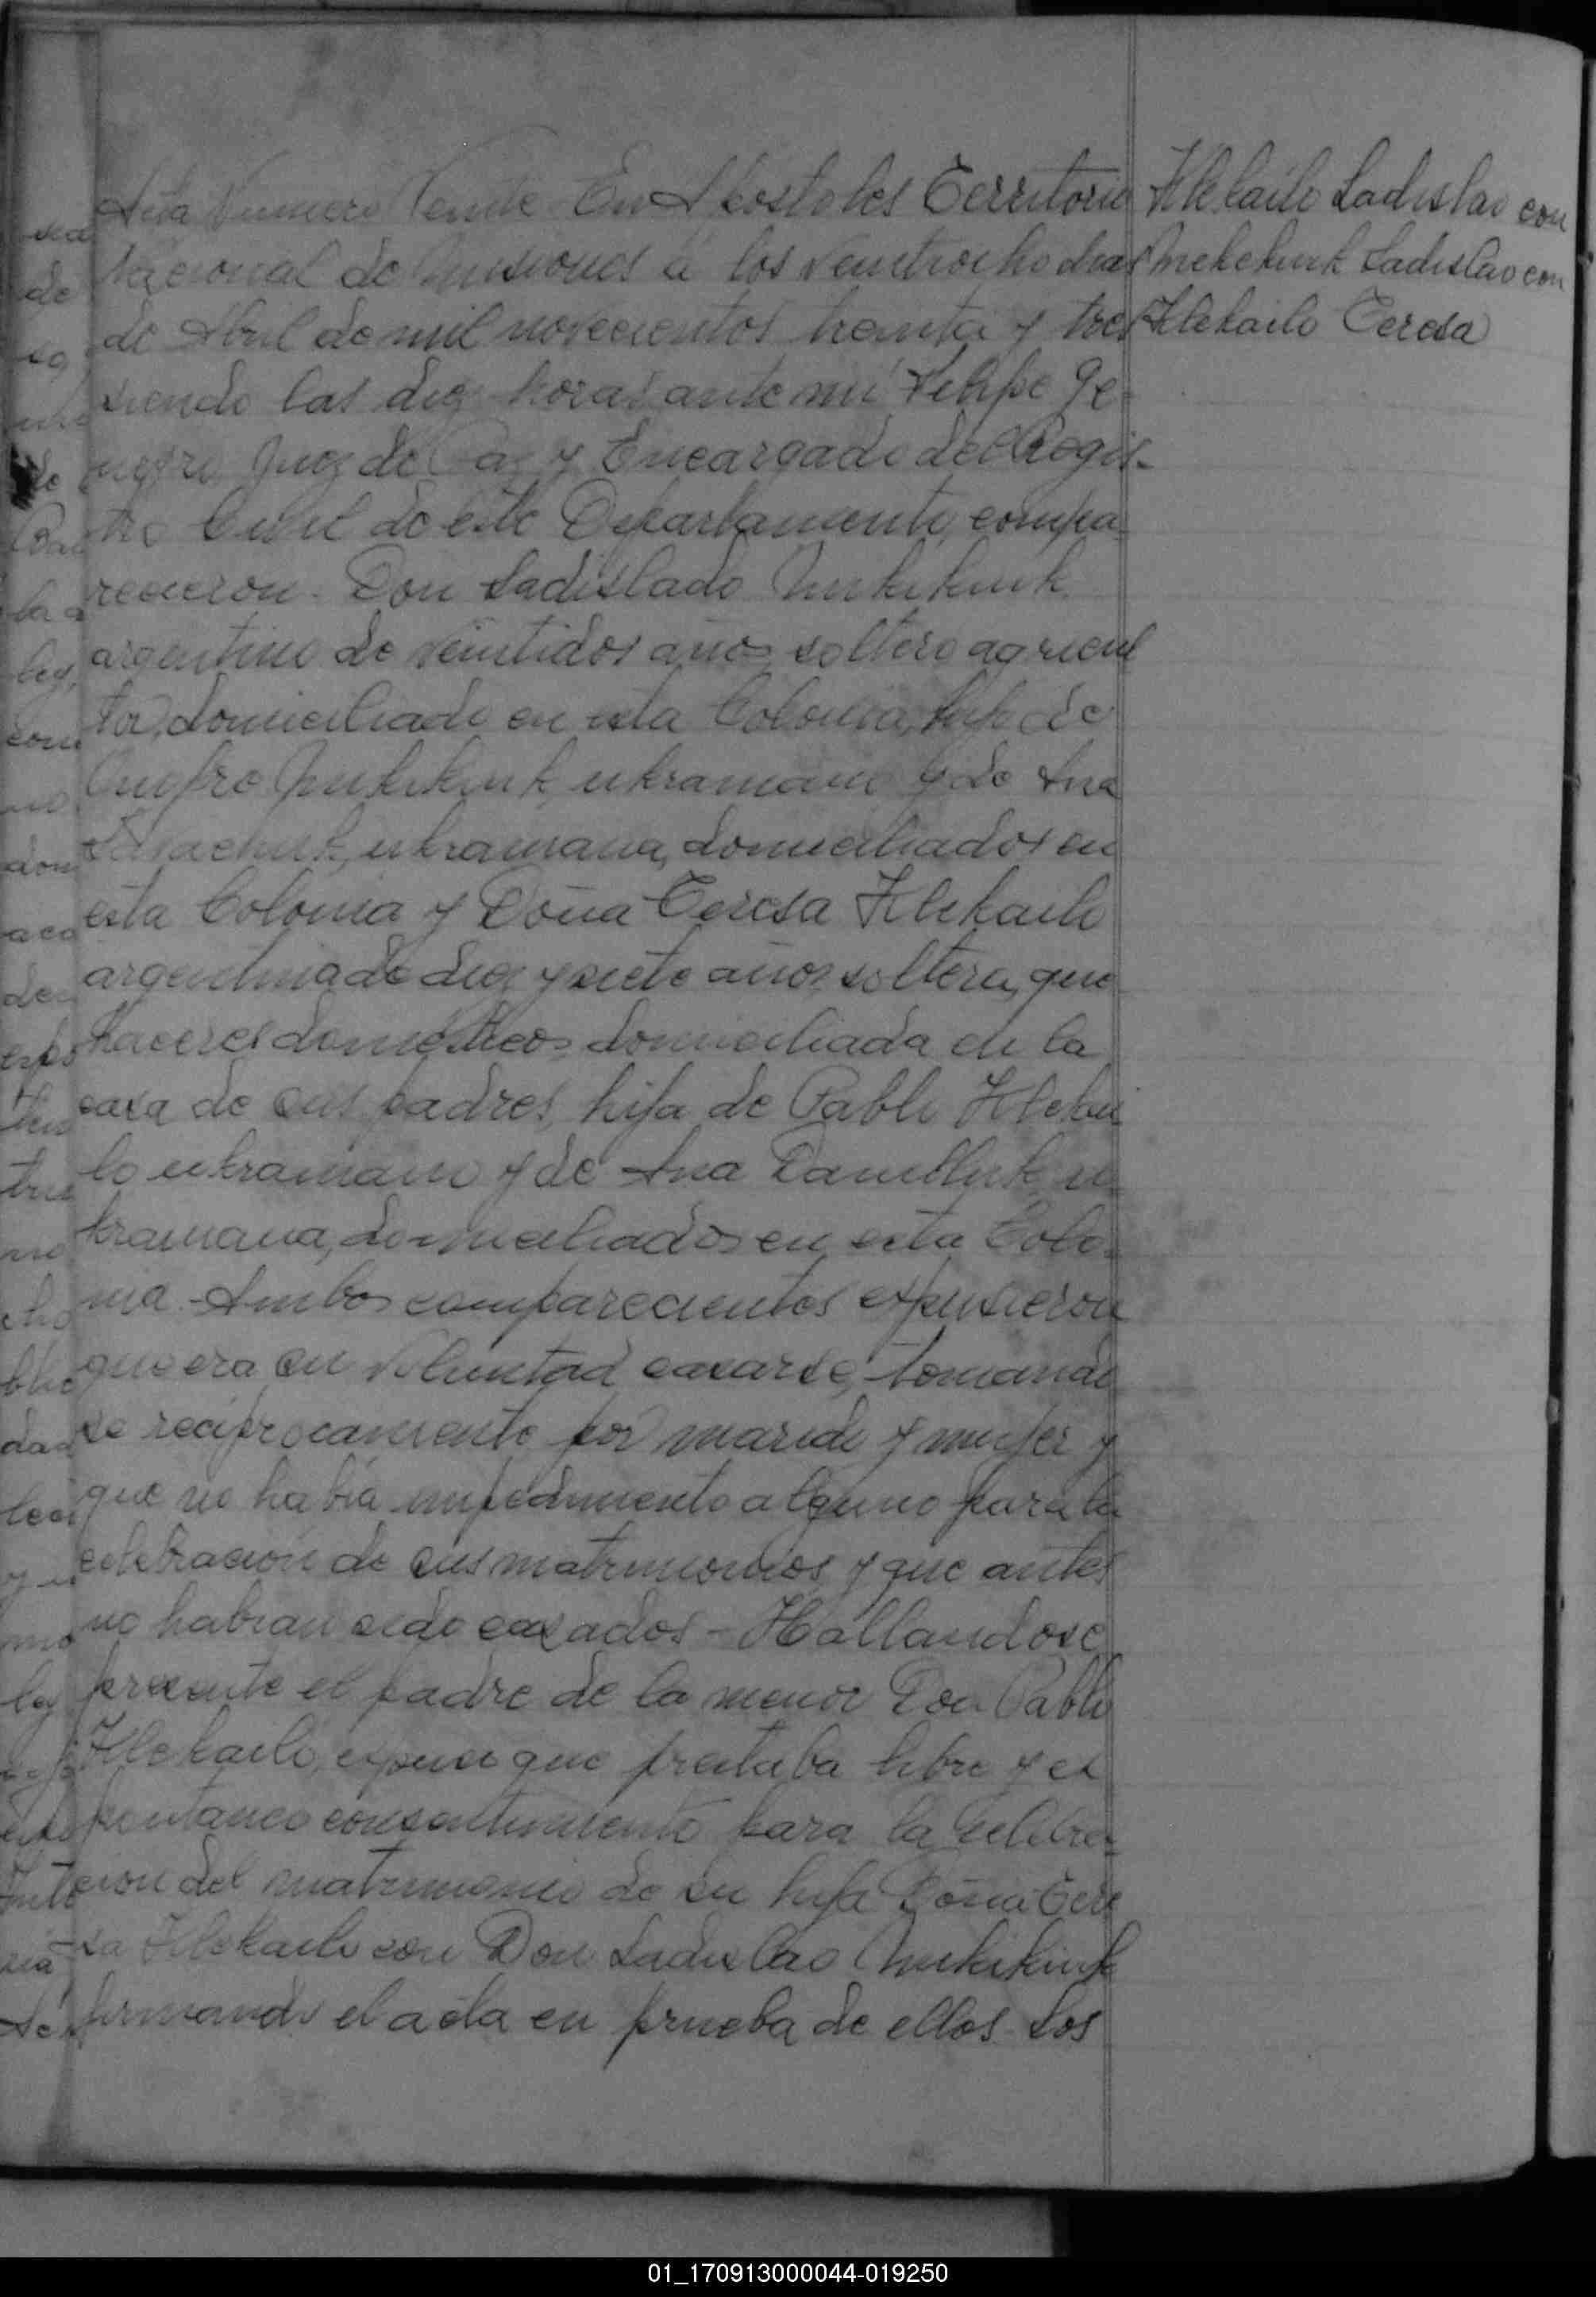 Acta Numero Veinte En Apostoles Territorio
Nacional de Misiones á los veintiocho dias
de Abril de mil novecientos treinta y tres
siendo las diez horas ante mi Felipe
Juez de Paz y Encargado del Regis-
tro Civil de este Departamento, compa-
recieron. Don Ladislado
argentino de veintidos años soltero agricul
tor, domiciliado en esta Colonia, hijo de
Onofre ukraniano y de Ana
ukraniana, domiciliados en
esta Colonia y Doña Teresa Hlekailo
argentina de diez y siete años, soltera, que
haceres domésticos domiciliada en la
casa de sus padres, hija de Pablo Hlekai
lo ukraniano y de Ana u-
kraniana, domiciliados en esta Colo-
nia. Ambos comparecientes expusieron
que era su voluntad casarse, tomando
se reciprocamente por marido y mujer y
que no habia impedimento alguno para la
celebracion de sus matrimonios y que antes
no habian sido casados - Hallandose
presente el padre de la menor Don Pablo
Hlekailo, expuso que prestaba libre y es
pontaneo consentimiento para la celebra-
cion del matrimonio de su hija Doña Tere
sa Hlekailo con Don Ladislao
firmando el acta en prueba de ellos - Los
Hlekailo Ladislao con
Ladislao con
Hlekailo Teresa
01_170913000044-019250